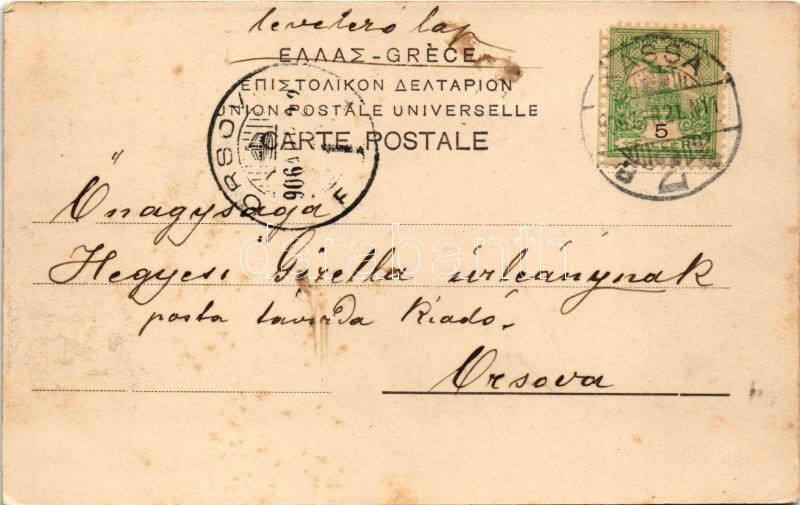 levelező lap
ΕΛΛΑΣ-GRÈCE
ΕΠΙΣΤΟΛΙΚΟΝ ΔΕΛΤΑΡΙΟΝ
UNION POSTALE UNIVERSELLE
CARTE POSTALE
5
ASSA
ORSOV
906
F
darabanth
Őnagysága
Hegyesi Gizella úrleánynak
posta távirda Kiadó.
Orsova